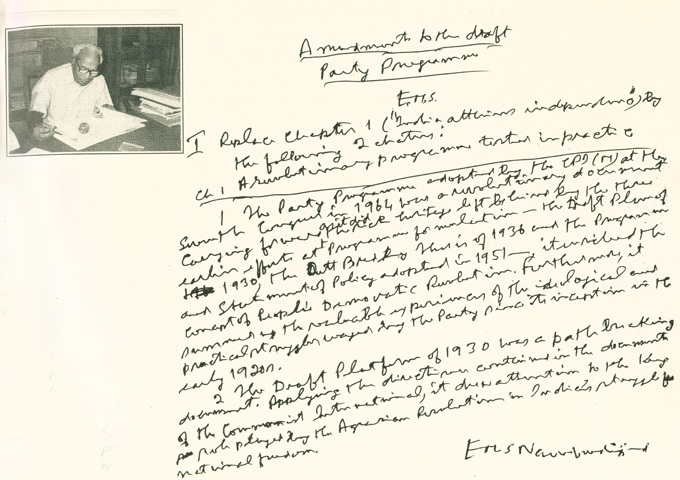 Amendments to the draft
Party Programme
E.M.S.
I Replace Chapter 1 ("India attains independence") by
the following 2 chapters:
Ch. 1 A revolutionary programme tested in practice
1 The Party Programme adopted by the CPI(M) at the
Seventh Congress in 1964 was a revolutionary document
Carrying forward as it did the rich heritage left behind by the three
earlier efforts at Programme formulation — the Draft Platform of
1930, the Dutt Bradley Thesis of 1936 and the Programme
and Statement of Policy adopted in 1951 — it enriched the
concept of People's Democratic Revolution. Furthermore, it
summed up the valuable experiences of the ideological and
practical struggles waged by the Party since its inception in the
early 1920s.
2 The Draft Platform of 1930 was a path breaking
document. Applying the directives contained in the documents
of the Communist International, it drew attention to the key
role played by the Agrarian Revolution in India's struggle for
national freedom.
EMS Namboodiripad